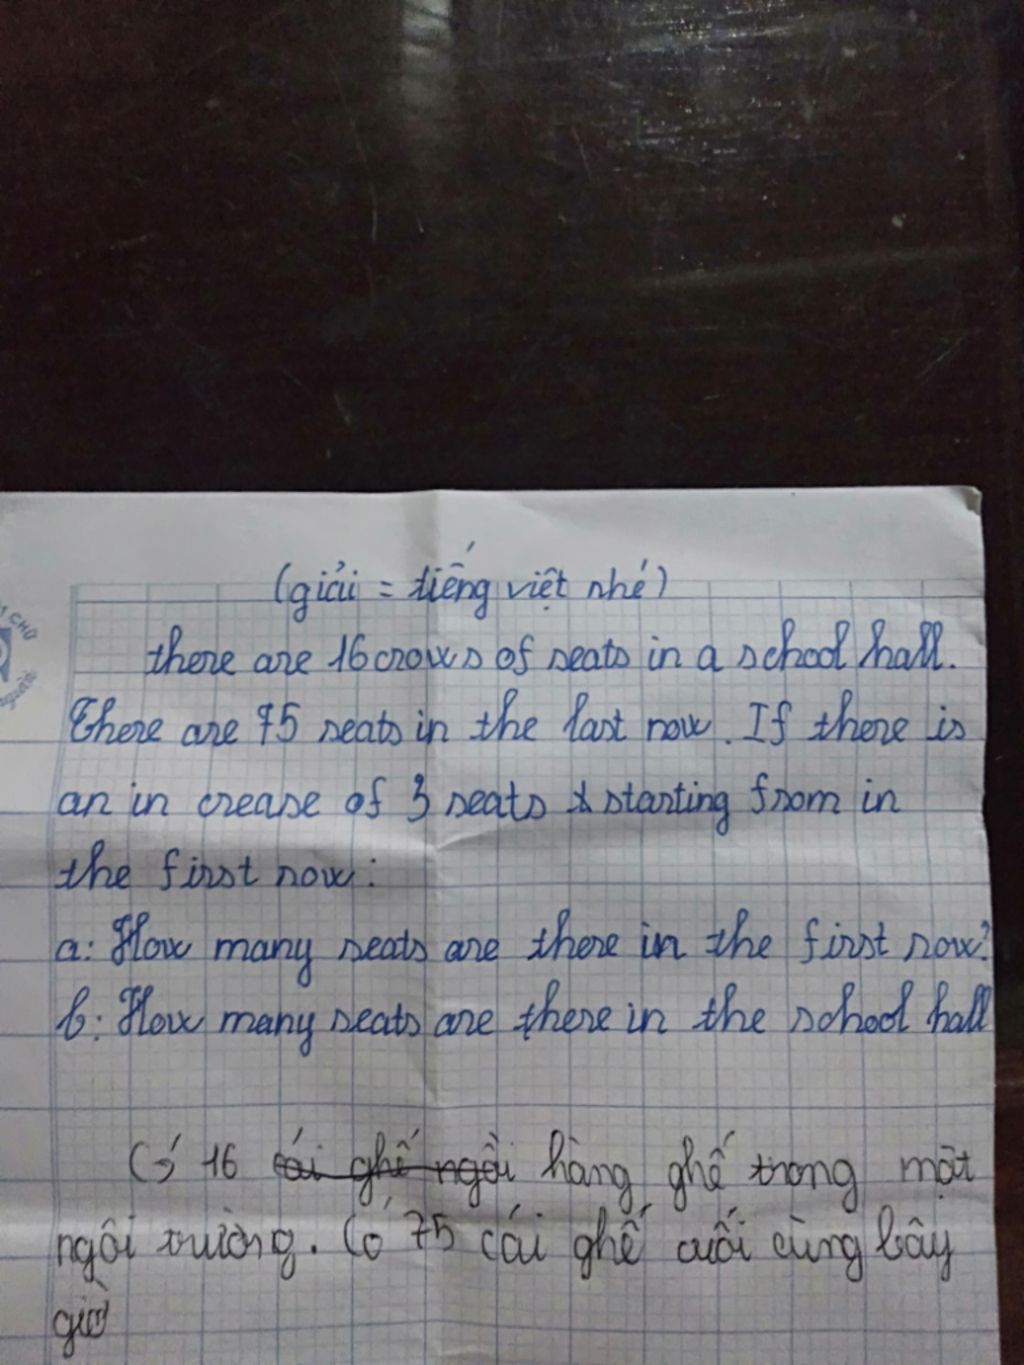 (giải = tiếng việt nhé)
there are 16 crows of seats in a school hall.
There are 75 seats in the last now. If there is
an in crease of 3 seats starting from in
the first now:
a: How many seats are there in the first now?
b: How many seats are there in the school hall
Có 16 cái ghế ngồi hàng ghế trong một
ngôi trường. Có 75 cái ghế cuối cùng bây
giờ